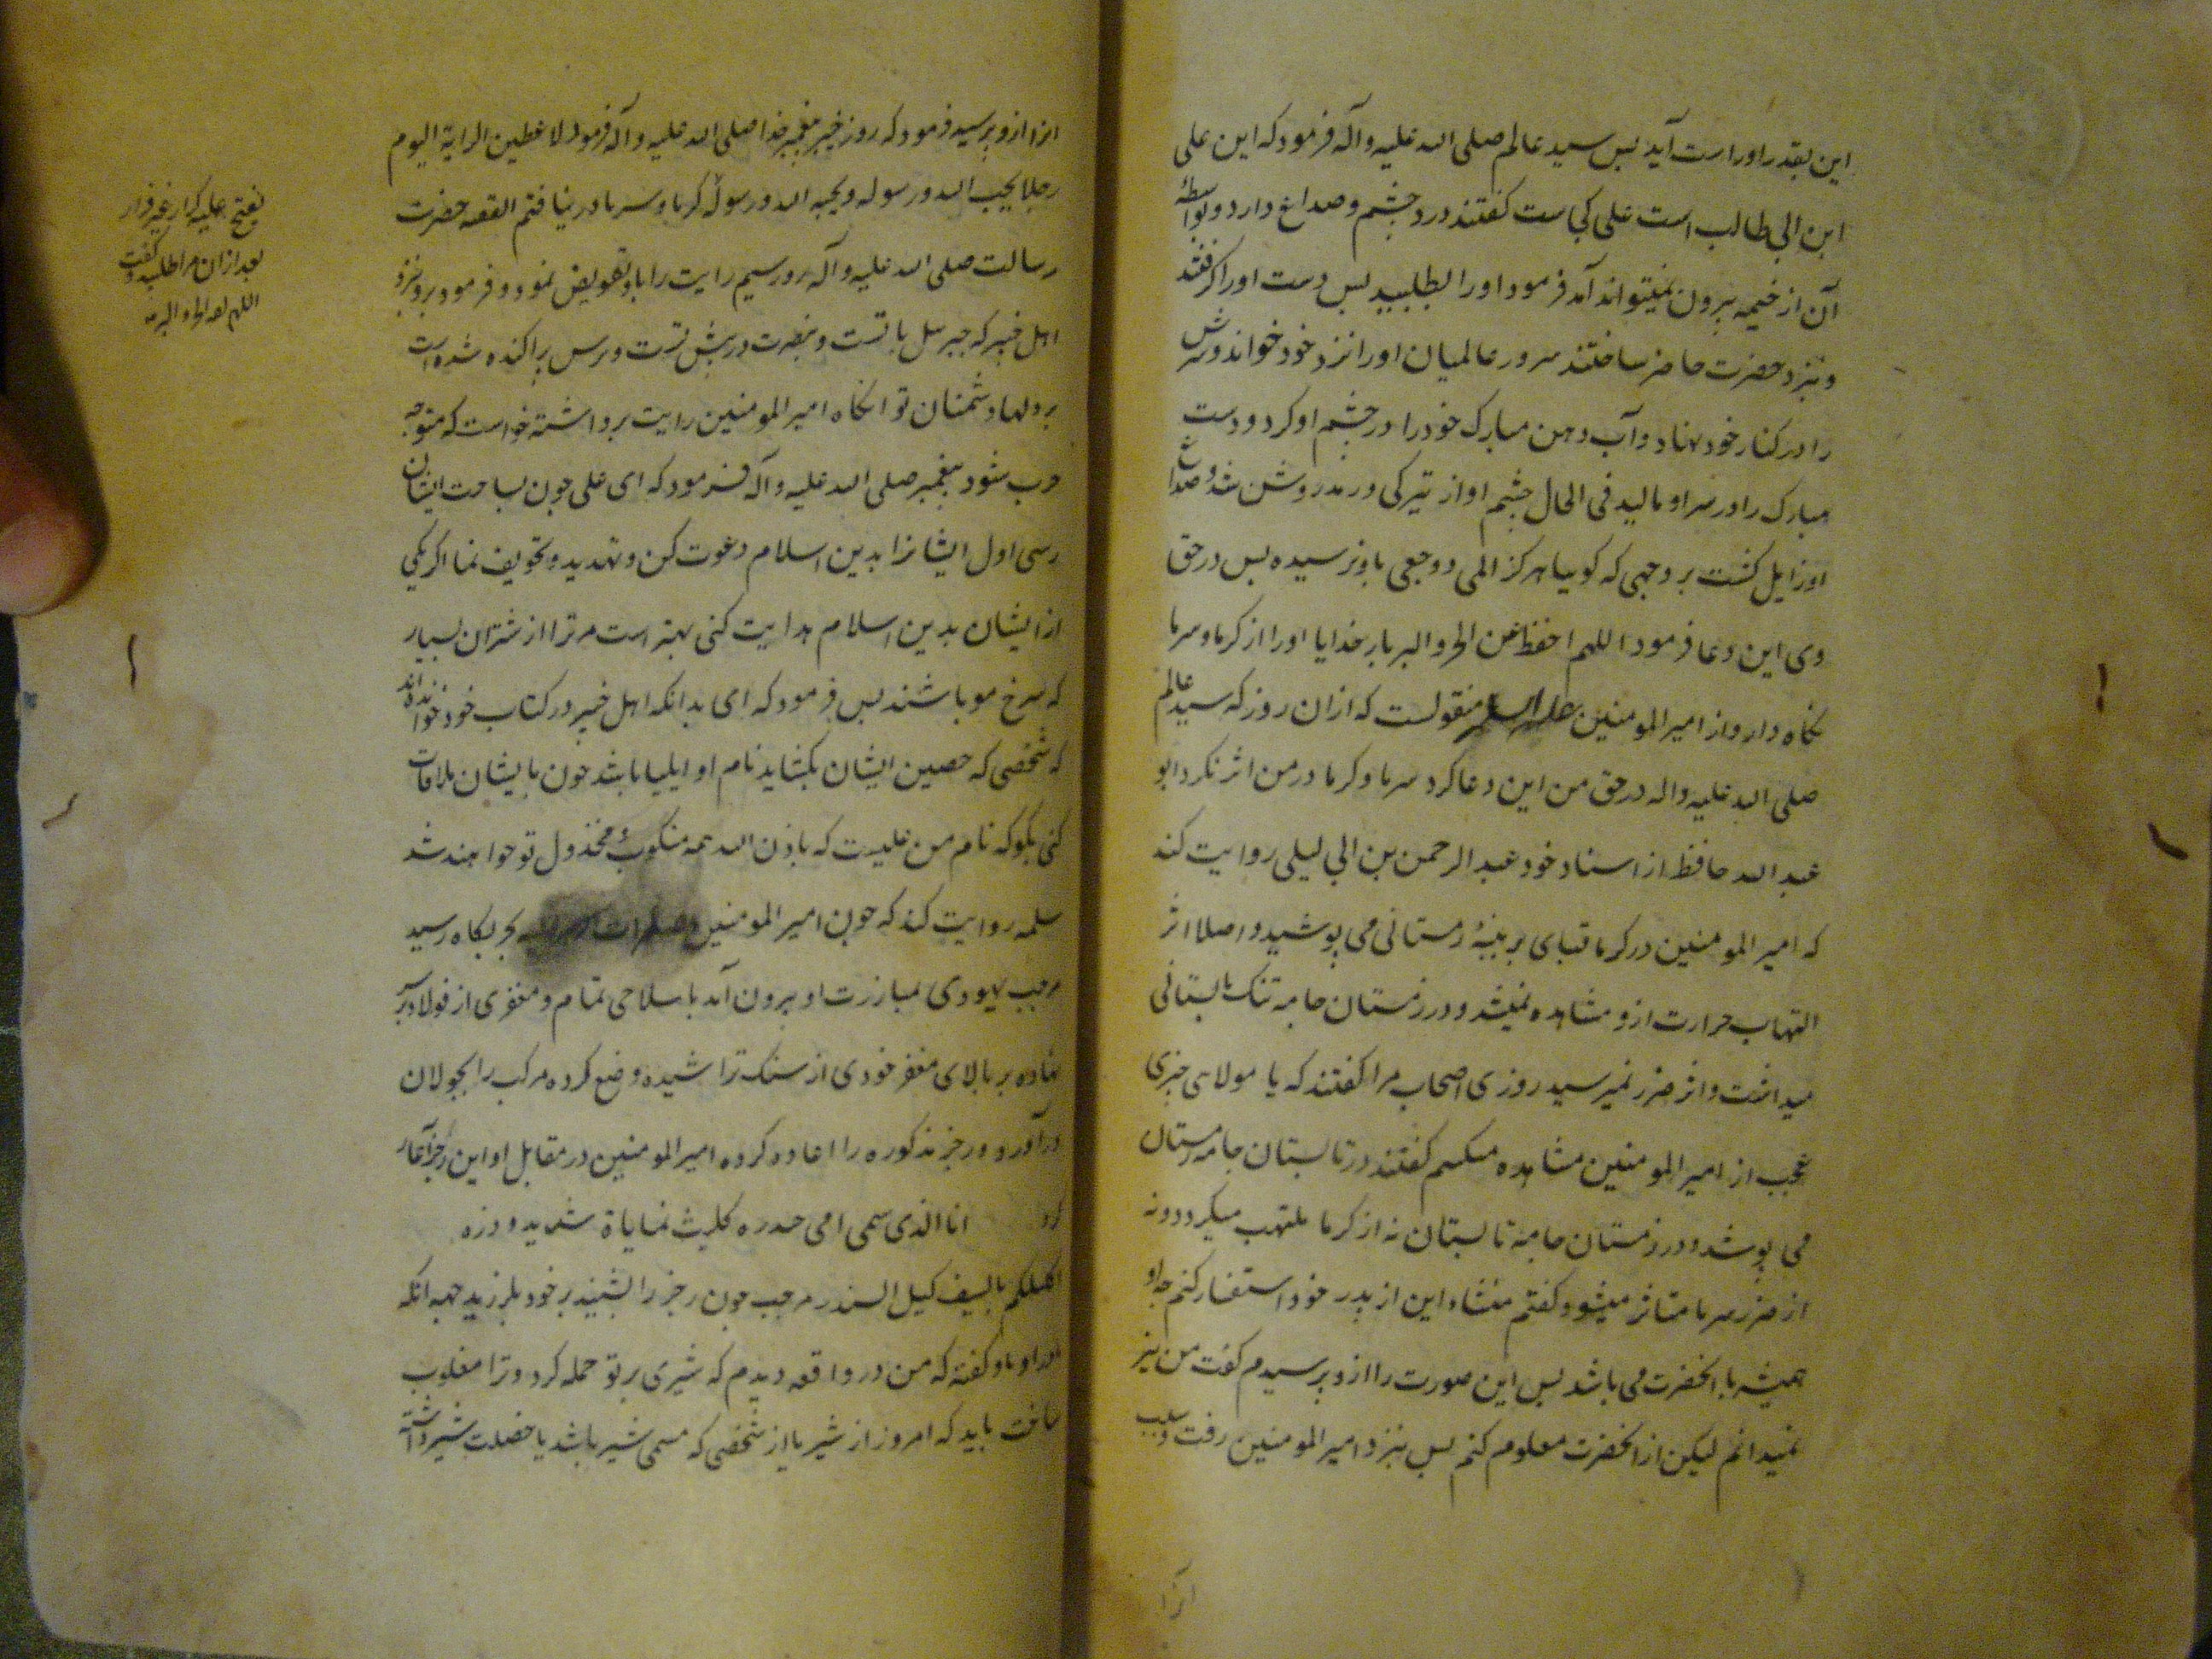 این بقدر او راست آید پس سید عالم صلی الله علیه وآله فرمود که این علی
ابن ابی طالب است علی کجاست کفتند درد چشم و صداع دارد و بواسطهٔ
آن از خیمه بیرون نمیتواند آمد فرمود او را بطلبید پس دست او را کرفتند
و بنزد حضرت حاضر ساختند سرور عالمیان او را نزد خود خواند و سرش
را در کنار خود نهاد و آب دهن مبارک خود را در چشم او کرد و دست
مبارک را در سر او مالید فی الحال چشم او از تیرکی و رمد روشن شد و صداع
او زایل کشت بر وجهی که کوییا هرکز المی و وجعی باو نرسیده پس در حق
وی این دعا فرمود اللهم احفظ عن الحر والبر بار خدایا او را از کرما و سرما
نکاه دار و از امیر المومنین علیه السلم منقولست که از ان روز که سید عالم
صلی الله علیه واله در حق من این دعا کرد سرما و کرما در من اثر نکرد ابو
عبد الله حافظ از اسناد خود عبد الرحمن بن ابی لیلی روایت کند
که امیر المومنین در کرما قبای پر پنبهٔ زمستانی می پوشید و اصلا اثر
التهاب حرارت ازو مشاهده نمیشد و در زمستان جامه تنک تابستانی
میداشت و اثر ضرر نمیرسید روزی اصحاب مرا کفتند که یا مولای چیزی
عجب از امیر المومنین مشاهده میکنیم کفتند در تابستان جامه زمستان
می پوشد و در زمستان جامهٔ تابستان نه از کرما ملتهب میکردد و نه
از ضرر سرما متاثر میشود کفتم منشاء این از پدر خود استفسار کنم چه او
همیشه با انحضرت می باشد پس این صورت را ازو پرسیدم کفت من نیز
نمیدانم لیکن از انحضرت معلوم کنم پس بنزد امیر المومنین رفت و سبب
انرا
انرا ازو پرسید فرمود که روز خیبر پیغمبر خدا صلی الله علیه وآله فرمود لاعطین الرایة الیوم
رجلا یحب الله ورسوله ویحبه الله ورسوله کرما و سرما در نیافتم القصه حضرت
رسالت صلی الله علیه وآله رایت را باو تفویض نمود و فرمود برو بنزد
اهل خیبر که جبرئیل با تست و نصرت در پیش تست و ترس پراکنده شده است
بر دلهاء دشمنان تو انکاه امیر المومنین رایت برداشته خواست که متوجه
حرب شود پیغمبر صلی الله علیه وآله فرمود که ای علی چون بساحت ایشان
رسی اول ایشانرا بدین اسلام دعوت کن و تهدید و تخویف نما اکر یکی
از ایشان بدین اسلام هدایت کنی بهتر است مر ترا از شتران بسیار
که سرخ مو باشند پس فرمود که ای بدانکه اهل خیبر در کتاب خود خوانده اند
که شخصی که حصین ایشان بکشاید نام او ایلیا باشد چون بایشان ملاقات
کنی بکو که نام من علیست که باذن الله همه منکوب و مخذول تو خواهند شد
سلمه روایت کند که چون امیر المومنین بحربکاه رسید
مرحب یهودی بمبارزت او بیرون آمد با سلاحی تمام و مغفری از فولاد بر سر
نهاده بر بالای مغفر خودی از سنک تراشیده وضع کرده مرکب را بجولان
درآورد و رجز مذکوره را اعاده کرده امیر المومنین در مقابل او این رجز آغاز
کرد انا الذی سمی امی حیدره کلیث غابات شدید و زره
اکیلکم بالسیف کیل السندر مرحب چون رجز را بشنید بر خود بلرزید جهه انکه
مادر او باو کفته که من در واقعه دیدم که شیری بر تو حمله کرد و ترا مغلوب
ساخت باید که امروز از شیر یا از شخصی که مسمی شیر باشد یا خصلت شیر داشته
بفتح علیه کرار غیر فرار
بعد از ان مرا طلبید و کفت
اللهم الحر والبرد